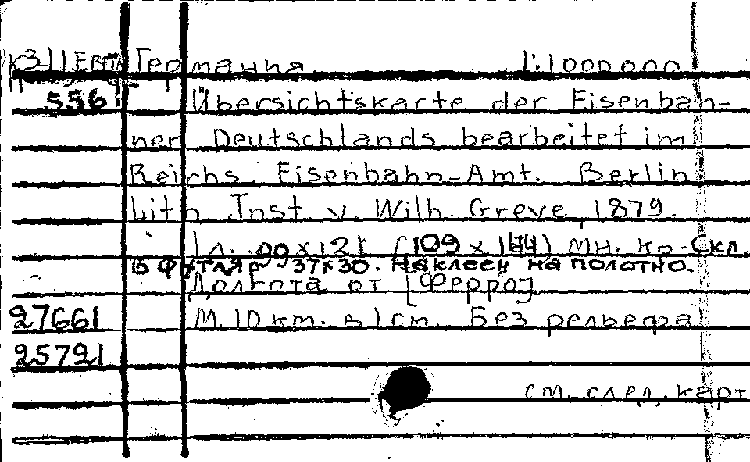 Германия 1:1000000
5561 Übersichtskarte der Eisenbah-
nen Deutschlands bearbeitet im
Reichs. Eisenbahn-Amt. Berlin
Lith. Inst. v. Wilh. Greve, 1879.
1 л. 90x121 (109 x 144) мн. кр. Скл.
в футляр 37x30. Наклеен на полотно.
Долгота от [Ферро]
27661 М. 10 км. в 1 см. Без рельефа
25721
см. след. карт